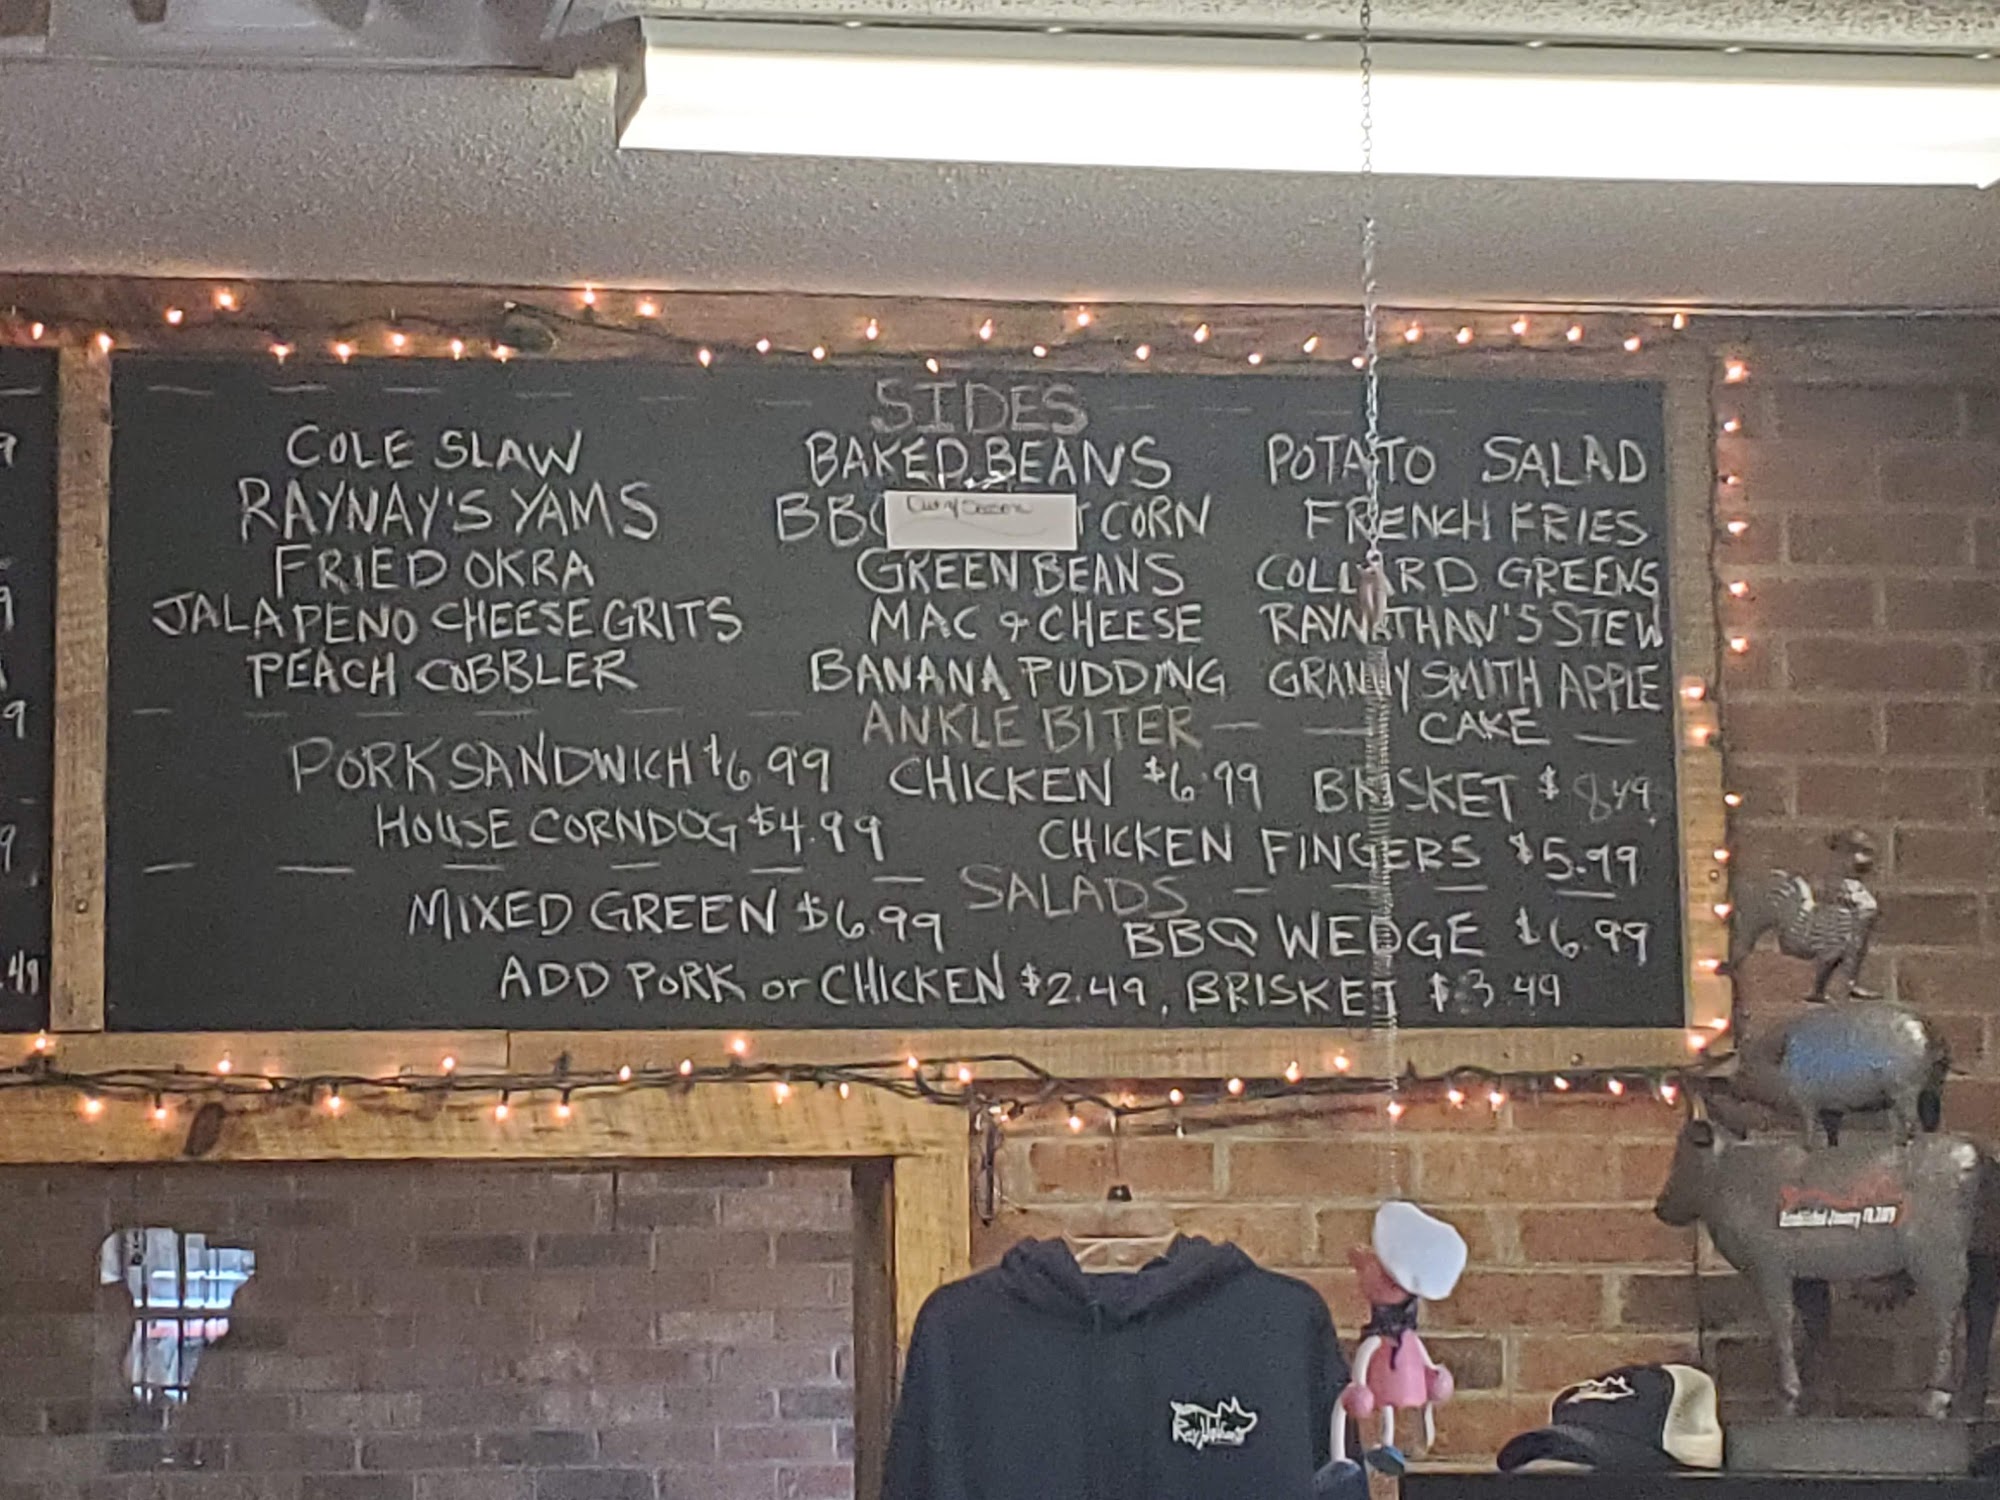 SIDES
COLE SLAW BAKED BEANS POTATO SALAD
RAYNAY'S YAMS BBQ CORN FRENCH FRIES
Out of Season
FRIED OKRA GREEN BEANS COLLARD GREENS
JALAPENO CHEESE GRITS MAC & CHEESE RAYNATHAN'S STEW
PEACH COBBLER BANANA PUDDING GRANNY SMITH APPLE
CAKE
ANKLE BITER
PORK SANDWICH $6.99 CHICKEN $6.99 BRISKET $8.49
HOUSE CORNDOG $4.99 CHICKEN FINGERS $5.99
SALADS
MIXED GREEN $6.99 BBQ WEDGE $6.99
ADD PORK or CHICKEN $2.49, BRISKET $3.49
9
9
9
9
.49